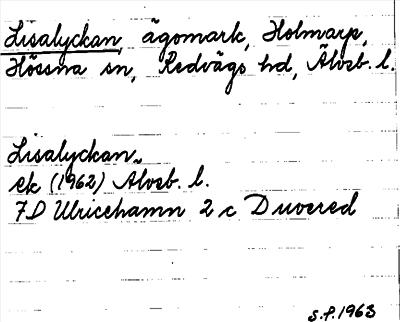 Lisalyckan, ägomark, Holmarp,
Hössna sn, Redvägs hd, Älvsb. l.
Lisalyckan
ek (1962) Älvsb. l.
7D Ulricehamn 2 c Duvered
S.P. 1963